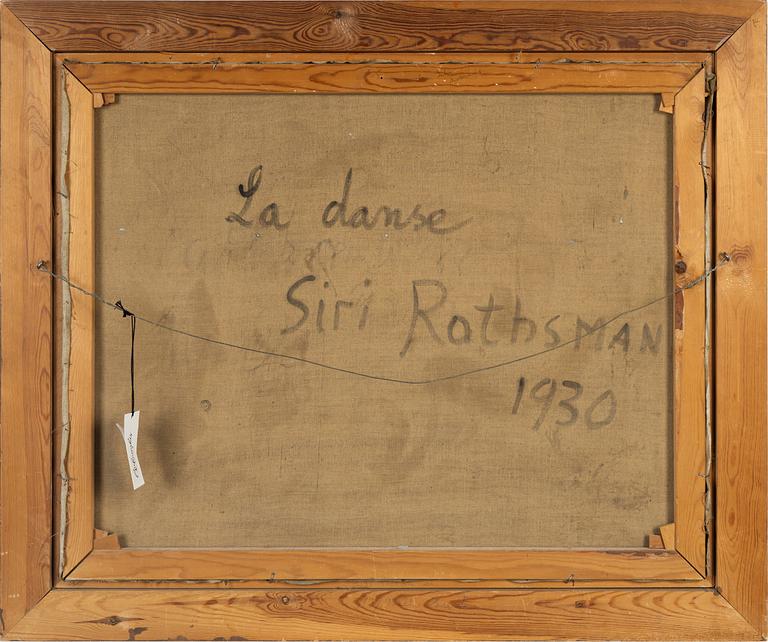 La danse
Siri Rothsman
1930